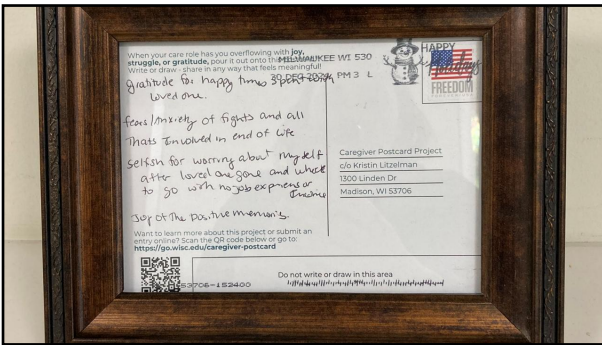 When your care role has you overflowing with joy,
struggle, or gratitude, pour it out onto this
Write or draw - share in any way that feels meaningful!
MILWAUKEE WI 530
30 DEC PM 3 L
HAPPY
Holidays
FREEDOM
gratitude for happy times spent with
loved one.
fears/Anxiety of fights and all
Thats Involved in end of life
selfish for worrying about myself
after loved one gone and where
to go with no job or
Income
Joy of The positive memories.
Caregiver Postcard Project
c/o Kristin Litzelman
1300 Linden Dr
Madison, WI 53706
Want to learn more about this project or submit an
entry online? Scan the QR code below or go to:
https://go.wisc.edu/caregiver-postcard
53706-152400
Do not write or draw in this area